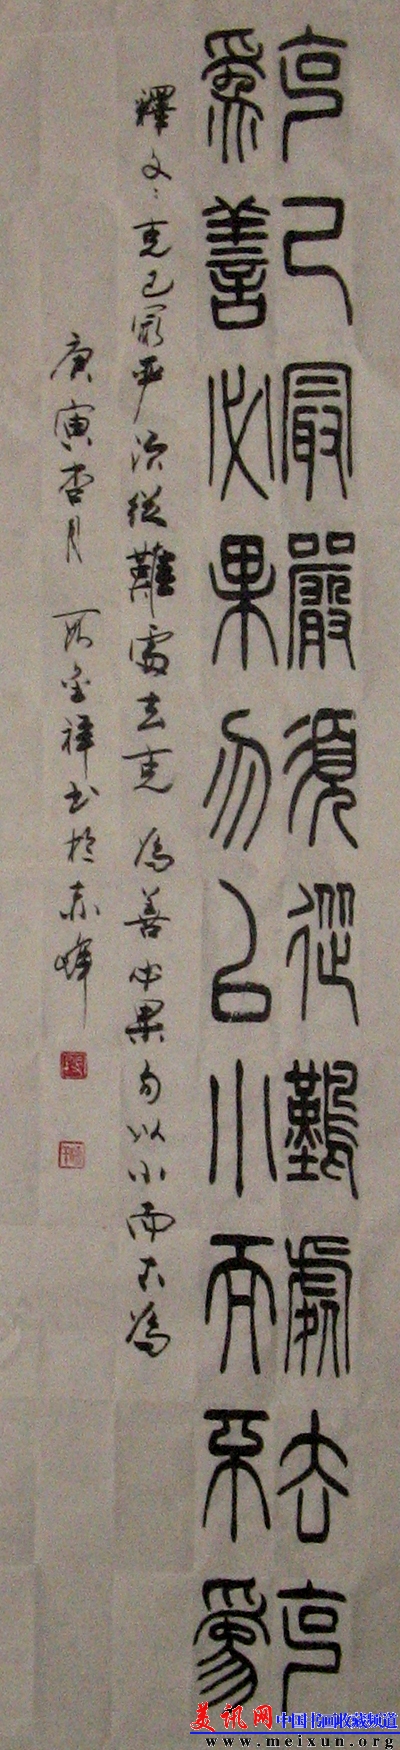 克己最嚴須從難處去克
為善必果勿以小而不為
釋文：克己最嚴須從難處去克 為善必果勿以小而不為
庚寅杏月 金祥書於赤峰
美讯网中国书画收藏频道
www.meixun.org